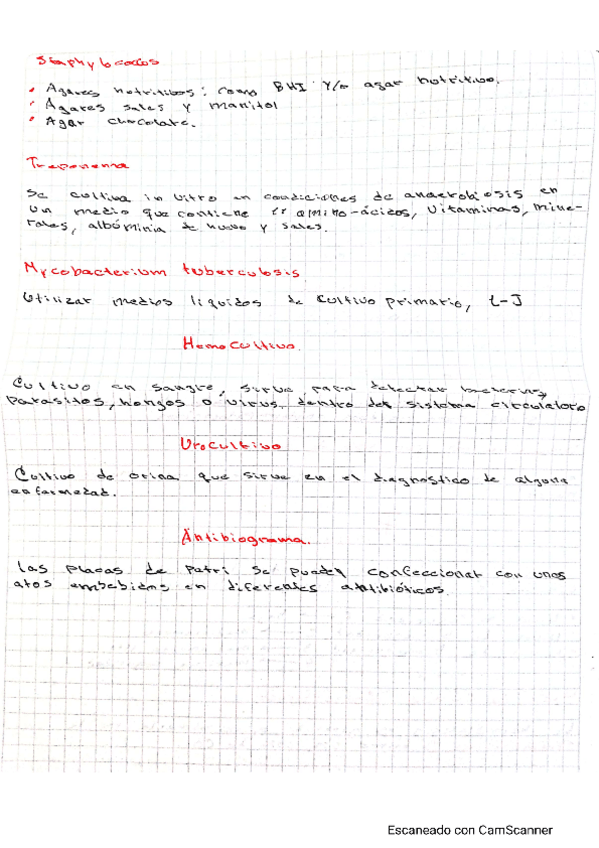 Staphylococos
• Agares nutritibos: como BHI y/o agar nutritivo.
• Agares sales y manitol
• Agar chocolate.
Treponema
Se cultiva in vitro en condiciones de anaerobiosis en
un medio que contiene 11 amino-ácidos, vitaminas, mine-
rales, albúminia de huevo y sales.
Mycobacterium tuberculosis
Utilizar medios liquidos de cultivo primario, L-J
Hemocultivo.
Cultivo en sangre, sirve para detectar bacterias,
parasitos, hongos o virus, dentro del sistema circulatoro
Urocultivo
Cultivo de orina que sirve en el diagnostico de alguna
enfermedad.
Antibiograma.
Las placas de Patri se pueden confeccionar con unos
aros embebidos en diferentes antibióticos.
Escaneado con CamScanner